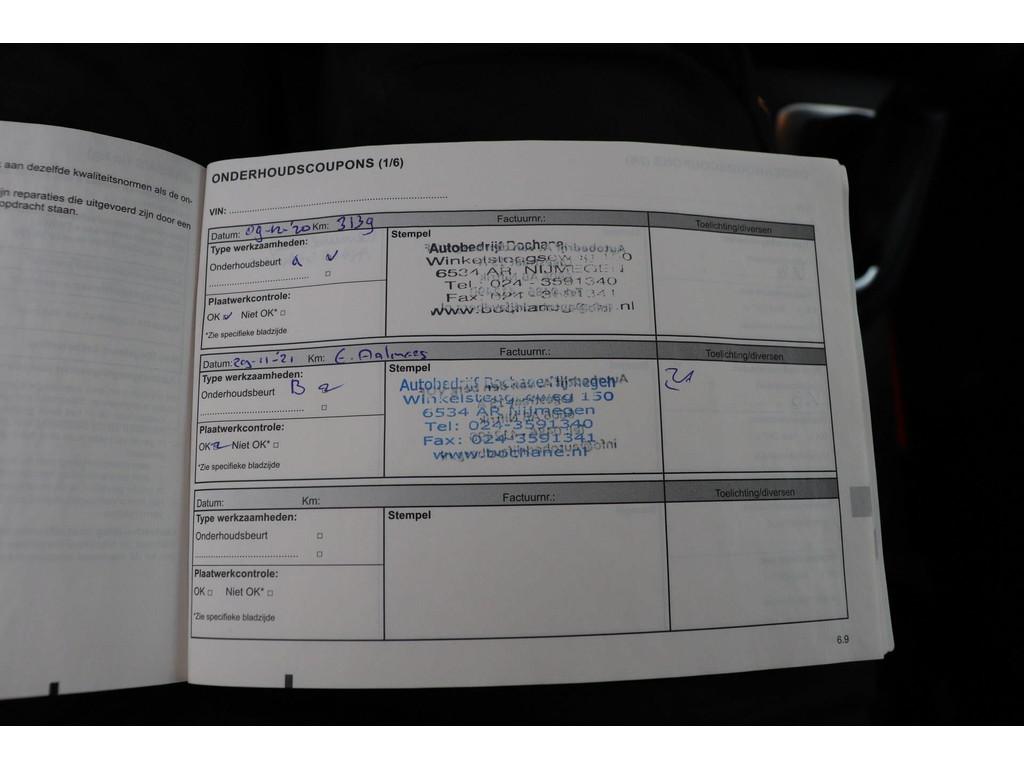 aan dezelfde kwaliteitsnormen als de on-
jn reparaties die uitgevoerd zijn door een
opdracht staan.
ONDERHOUDSCOUPONS (1/6)
VIN:
Datum: 09-12-'20 Km: 3139 Factuurnr.: Toelichting/diversen
Type werkzaamheden:
Onderhoudsbeurt a
Plaatwerkcontrole:
OK Niet OK*
*Zie specifieke bladzijde
Stempel
Autobedrijf Bochane
6534 AR NIJMEGEN
Tel 024 - 3591340
Fax
www.bochane.nl
Datum: 29-11-'21 Km: Factuurnr.: Toelichting/diversen
Type werkzaamheden:
Onderhoudsbeurt B
Plaatwerkcontrole:
OK Niet OK*
*Zie specifieke bladzijde
Stempel
Autobedrijf Bochane Nijmegen
Winkelsteegseweg 150
6534 AR Nijmegen
Tel: 024-3591340
Fax: 024-3591341
www.bochane.nl
Datum: Km: Factuurnr.: Toelichting/diversen
Type werkzaamheden:
Onderhoudsbeurt
Plaatwerkcontrole:
OK Niet OK*
*Zie specifieke bladzijde
Stempel
6.9